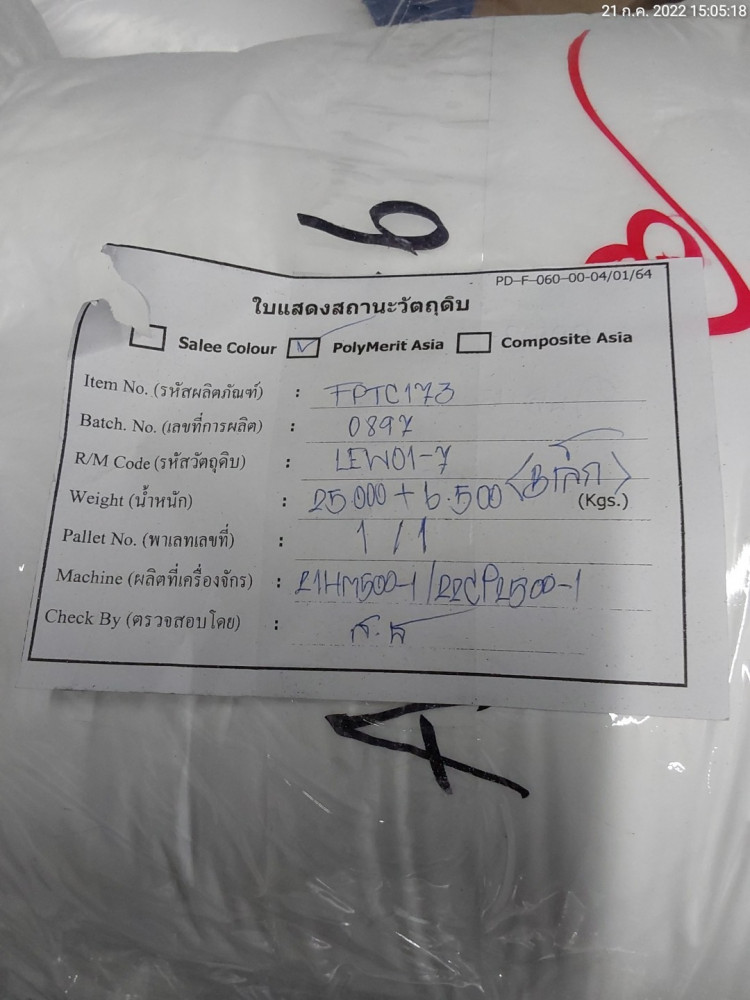 21 ก.ค. 2022 15:05:18
6
PD-F-060-00-04/01/64
ใบแสดงสถานะวัตถุดิบ
Salee Colour PolyMerit Asia Composite Asia
Item No. (รหัสผลิตภัณฑ์) : FPTC173
Batch. No. (เลขที่การผลิต) : 0897
R/M Code (รหัสวัตถุดิบ) : LEW01-7
Weight (น้ำหนัก) : 25.000 + 6.500 (Kgs.)
Pallet No. (พาเลทเลขที่) : 1 / 1
Machine (ผลิตที่เครื่องจักร) : 21HM500-1/22CP2500-1
Check By (ตรวจสอบโดย) :